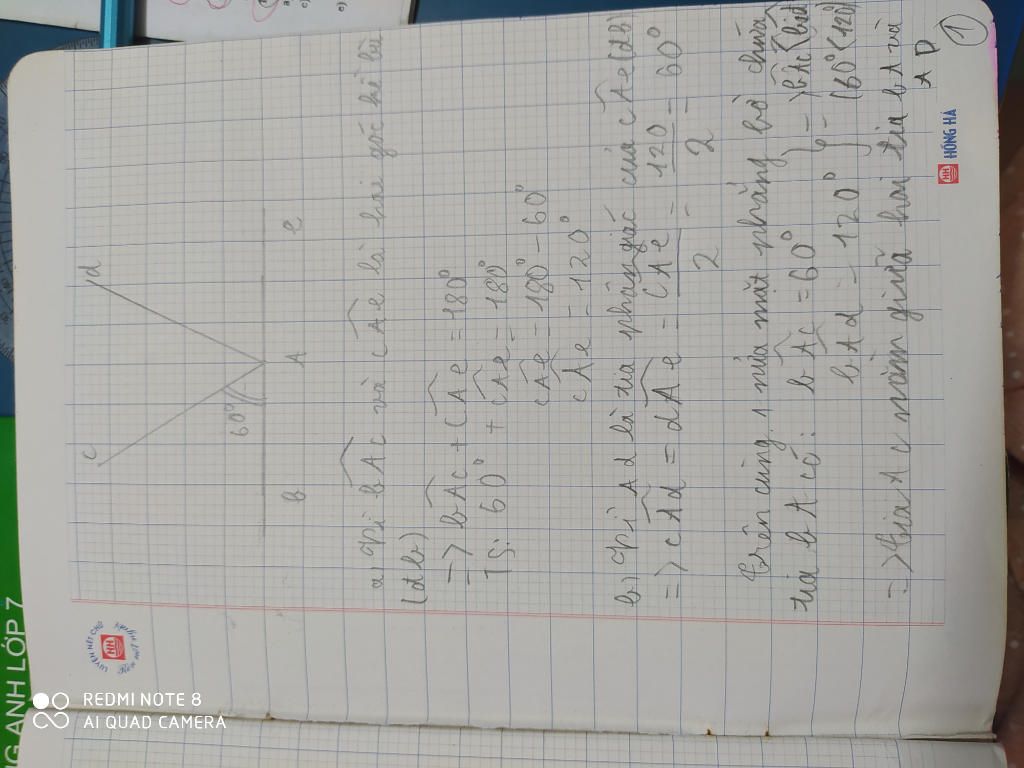 c
d
60°
b
A
e
a) Vì bAc và cAe là hai góc kề bù
(đb)
=> bAc + cAe = 180°
TS: 60° + cAe = 180°
cAe = 180° - 60°
cAe = 120°
b) Vì Ad là tia phân giác của cAe (đb)
=> cAd = dAe = cAe/2 = 120/2 = 60°
trên cùng 1 nửa mặt phẳng bờ chứa
tia bA có: bAc = 60° } => bAc < bAd
bAd = 120° (60° < 120°)
=> tia Ac nằm giữa hai tia bA và
AD
1
HH HỒNG HÀ
LUYỆN NÉT CHỮ
HH
NG ANH LỚP 7
REDMI NOTE 8
AI QUAD CAMERA